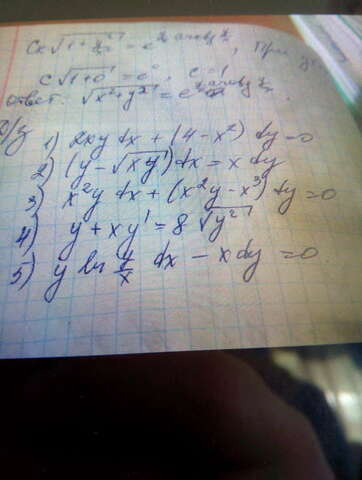 Cx√(1 + y²/x²) = e^(2 arctg y/x), При
C√(1+0) = e⁰, C = 1
Ответ: √(x²+y²) = e^(2 arctg y/x)
D/з 1) 2xy dx + (4 - x²) dy = 0
2) (y - √xy) dx = x dy
3) x²y dx + (x²y - x³) dy = 0
4) y + xy' = 8√y²
5) y ln y/x dx - x dy = 0